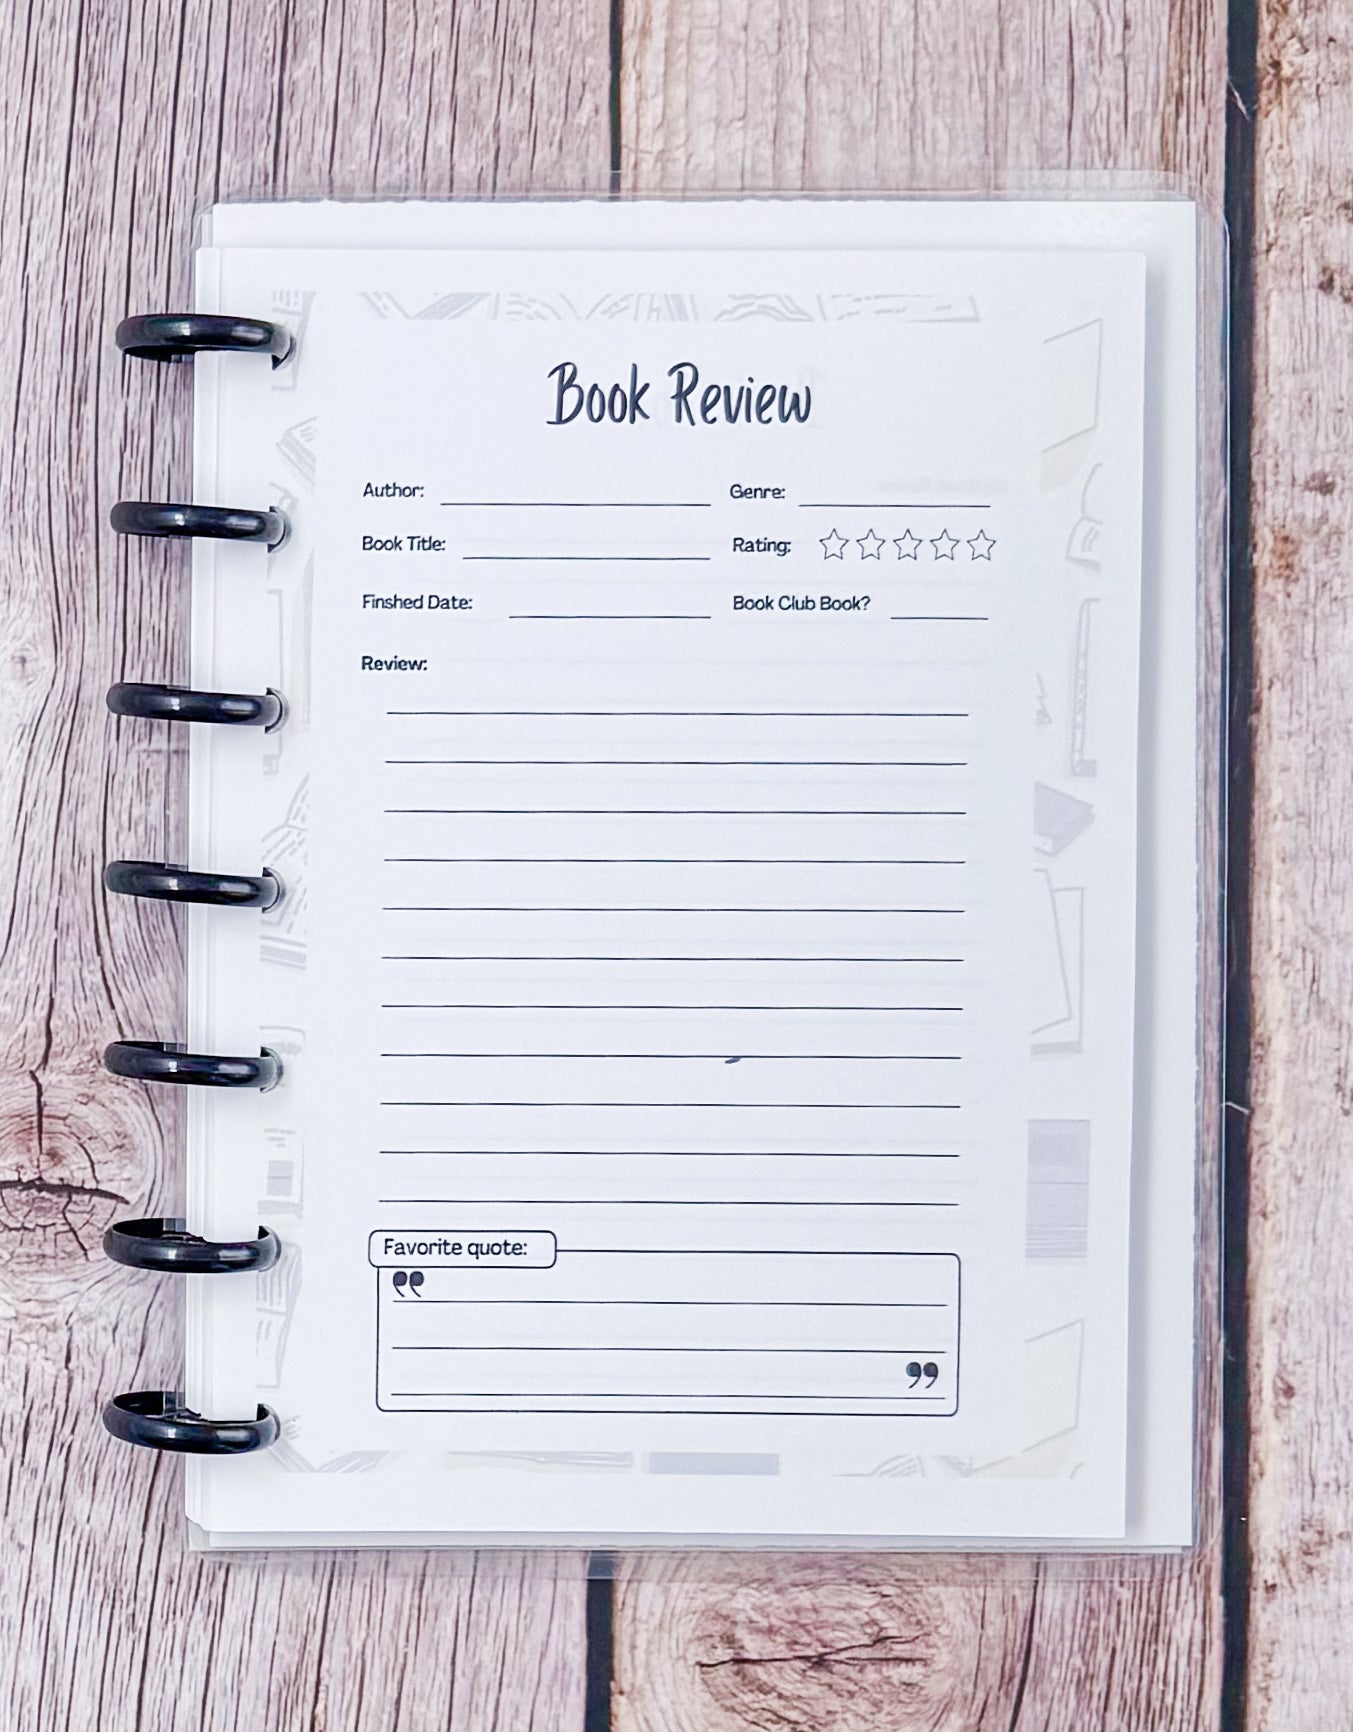 Book Review
Author: Genre:
Book Title: Rating:
Finshed Date: Book Club Book?
Review:
Favorite quote: